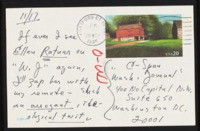 11/17
If ever I see
Ellen Ratner on
"W. J." again,
I'll zap her with
my remote - which
an arrogant,
physical twist,
C-Span
"Wash. Journal"
400 No Capital
Suite 650
Washington DC.
20001
USA 20